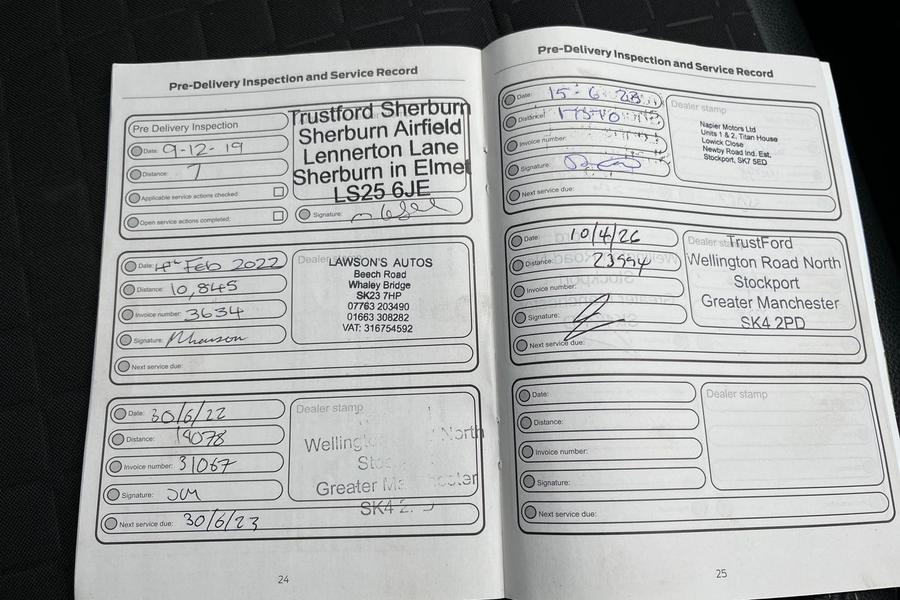 Pre-Delivery Inspection and Service Record
Pre Delivery Inspection
Date: 9-12-19
Distance: 7
Applicable service actions checked:
Open service actions completed:
Trustford Sherburn
Sherburn Airfield
Lennerton Lane
Sherburn in Elmet
LS25 6JE
Signature:
Date: 4th Feb 2022
Distance: 10,845
Invoice number: 3634
Signature:
Next service due:
Dealer
LAWSON'S AUTOS
Beech Road
Whaley Bridge
SK23 7HP
07763 203490
01663 308282
VAT: 316754592
Date: 30/6/22
Distance: 14078
Invoice number: 31067
Signature: JM
Next service due: 30/6/23
Dealer stamp
North
Greater
SK4
24
Pre-Delivery Inspection and Service Record
Date: 15-6-23
Distance:
Invoice number:
Signature:
Next service due:
Dealer stamp
Napier Motors Ltd
Units 1 & 2, Titan House
Lowick Close
Newby Road Ind. Est.
Stockport, SK7 5ED
Date: 10/4/26
Distance: 23994
Invoice number:
Signature:
Next service due:
Dealer
TrustFord
Wellington Road North
Stockport
Greater Manchester
SK4 2PD
Date:
Distance:
Invoice number:
Signature:
Next service due:
Dealer stamp
25